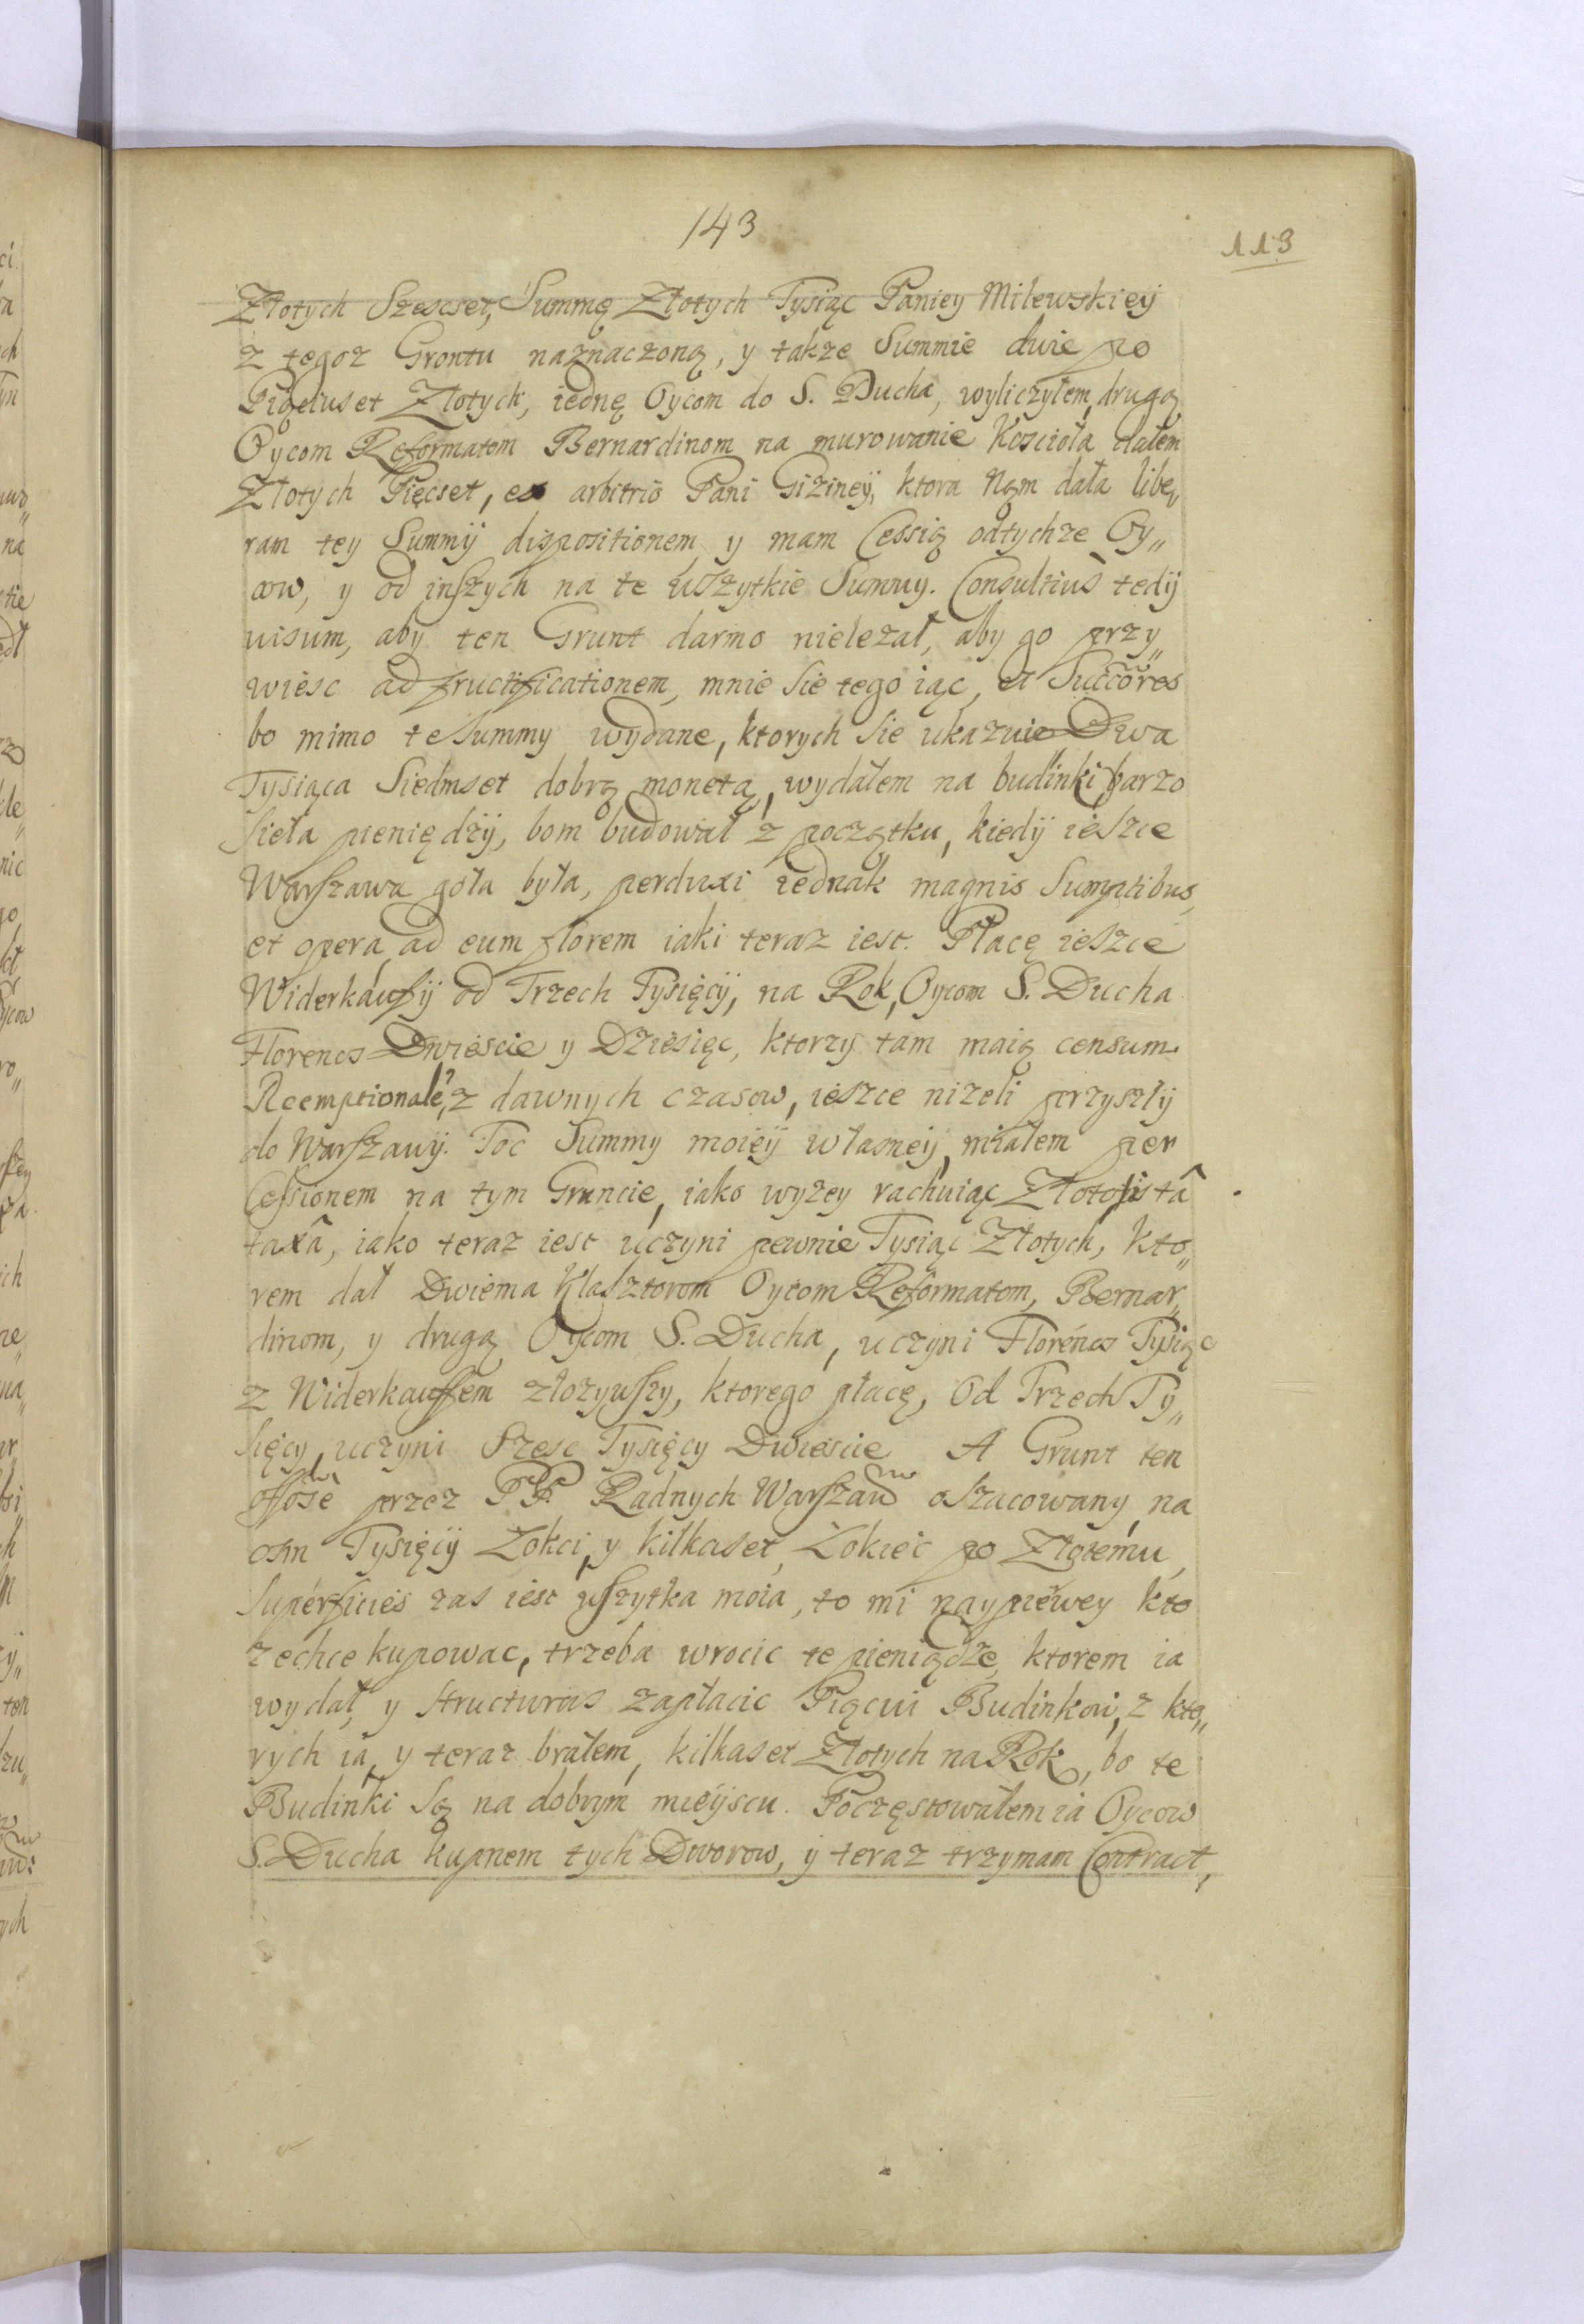 143
113
Złotych Szescset, Summę Złotych Tysiąc Paniey Milewskieÿ
z tegoz Grontu naznaczoną, y takze Summie dwie po
Piąciuset Złotych, iednę Oycom do S. Ducha, wyliczyłem, drugą
Oycom Reformatom Bernardinom na murowanie Koscioła dałem
Złotych Pięcset, ex arbitrio Pani Gizineÿ, ktora Nąm dała libe„
ram tey Summÿ dispositionem y mam Cessią odtychze Oy„
cow, y od inszych na te wszytkie Summy. Consultius tedÿ
uisum, aby ten Grunt darmo nielezał, aby go przy„
wiesc ad fructificationem, mnie sie tego iąc, et Succores
bo mimo te Summy wydane, ktorych sie ukazuie Dwa
Tysiąca Siedmset dobrą monetą, wydałem na budinki barzo
sieła pieniędzÿ, bom budował z początku, kiedÿ ieszce
Warszawa goła była, perduxi iednak magnis Sumptibus,
et opera ad eum florem iaki teraz iest. Płacę ieszce
Widerkaufÿ od Trzech Tysięcÿ, na Rok, Oycom S. Ducha
Florenos Dwiescie y Dziesięc, ktorzy tam maią censum
Reemptionalē, z dawnych czasow, ieszce nizeli przyszłÿ
do Warszawÿ. Toc Summy moieÿ własneÿ, miałem per
Cessionem na tym Gruncie, iako wyzey rachuiąc Złotopistâ
taxâ, iako teraz iest uczyni pewnie Tysiąc Złotych, kto„
rem dał Dwiema Klasztorom Oycom Reformatom, Bernar„
dinom, y drugą Oycom S. Ducha, uczyni Florenos Tysiąc
z Widerkauffem złozywszy, ktorego płacę, od Trzech Ty„
sięcy, uczyni Szesc Tysięcy Dwiescie A Grunt ten
przez PP. Radnych Warszaw oszacowany na
osm Tysięcÿ Łokci, y kilkaset, Łokiec po Złotemu,
Superficies zas iest wszytka moia, to mi naypierwey kto
zechce kupowac, trzeba wrocic te pieniądze, ktorem ia
wydał, y structuras zapłacic Piąciu Budinkow, z kto„
rych ia, y teraz brałem, kilkaset Złotych na Rok, bo te
Budinki są na dobrym mieÿscu. Poczęstowałem ia Oycow
S. Ducha kupnem tych Dworow, y teraz trzymam Contract,